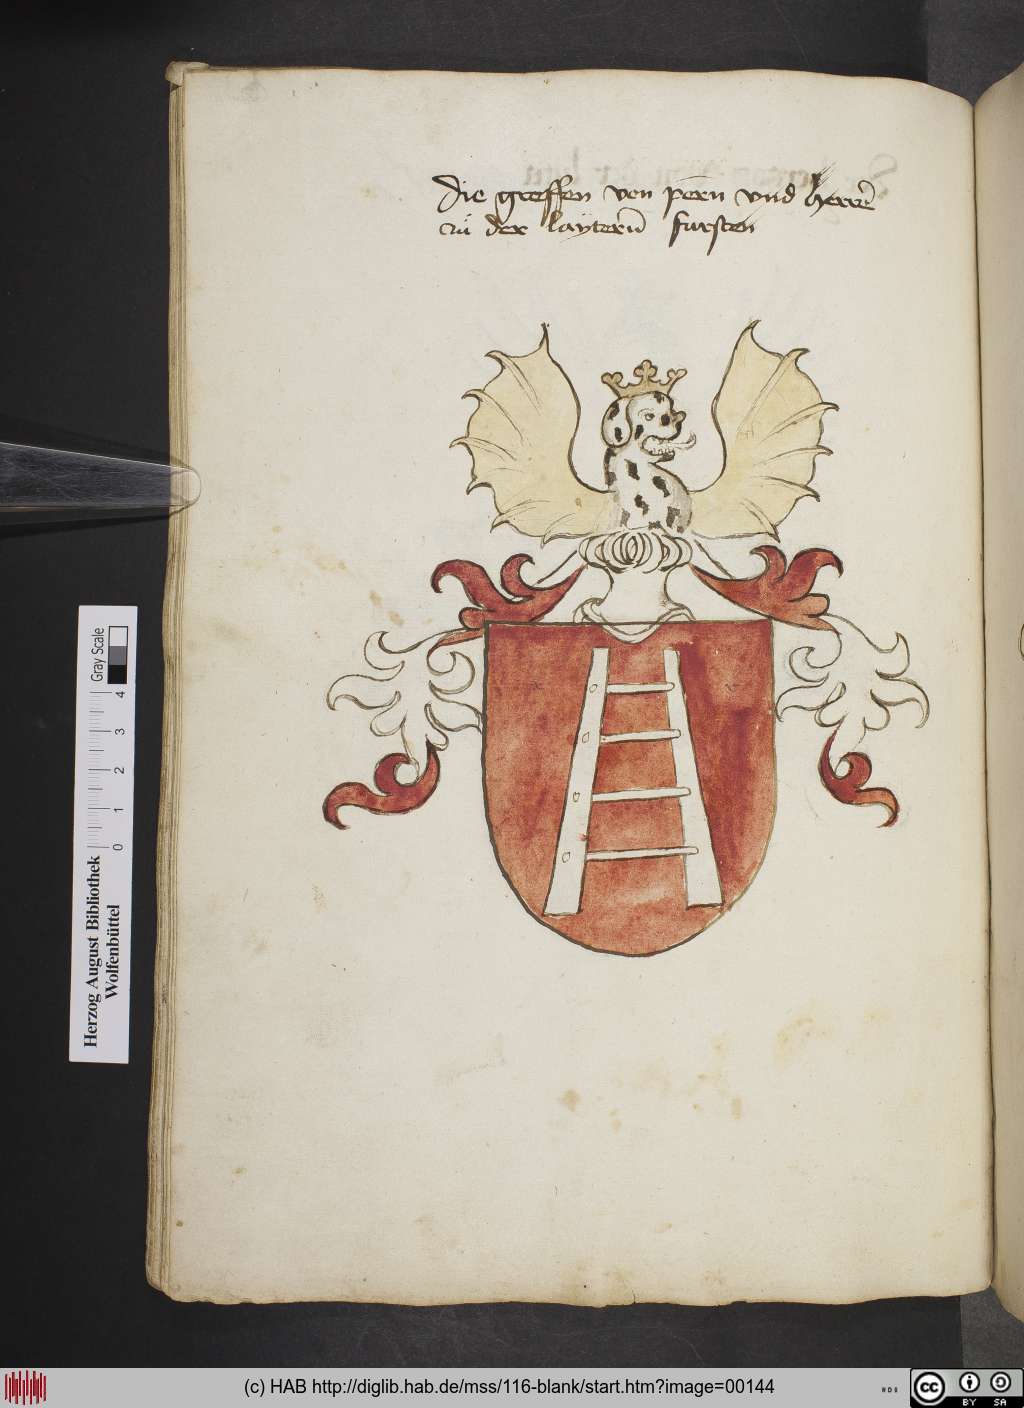 die greffen von pern vnd herrē
zů der layterū fursten
Gray Scale
0 1 2 3 4
Herzog August Bibliothek
Wolfenbüttel
(c) HAB http://diglib.hab.de/mss/116-blank/start.htm?image=00144
cc BY SA